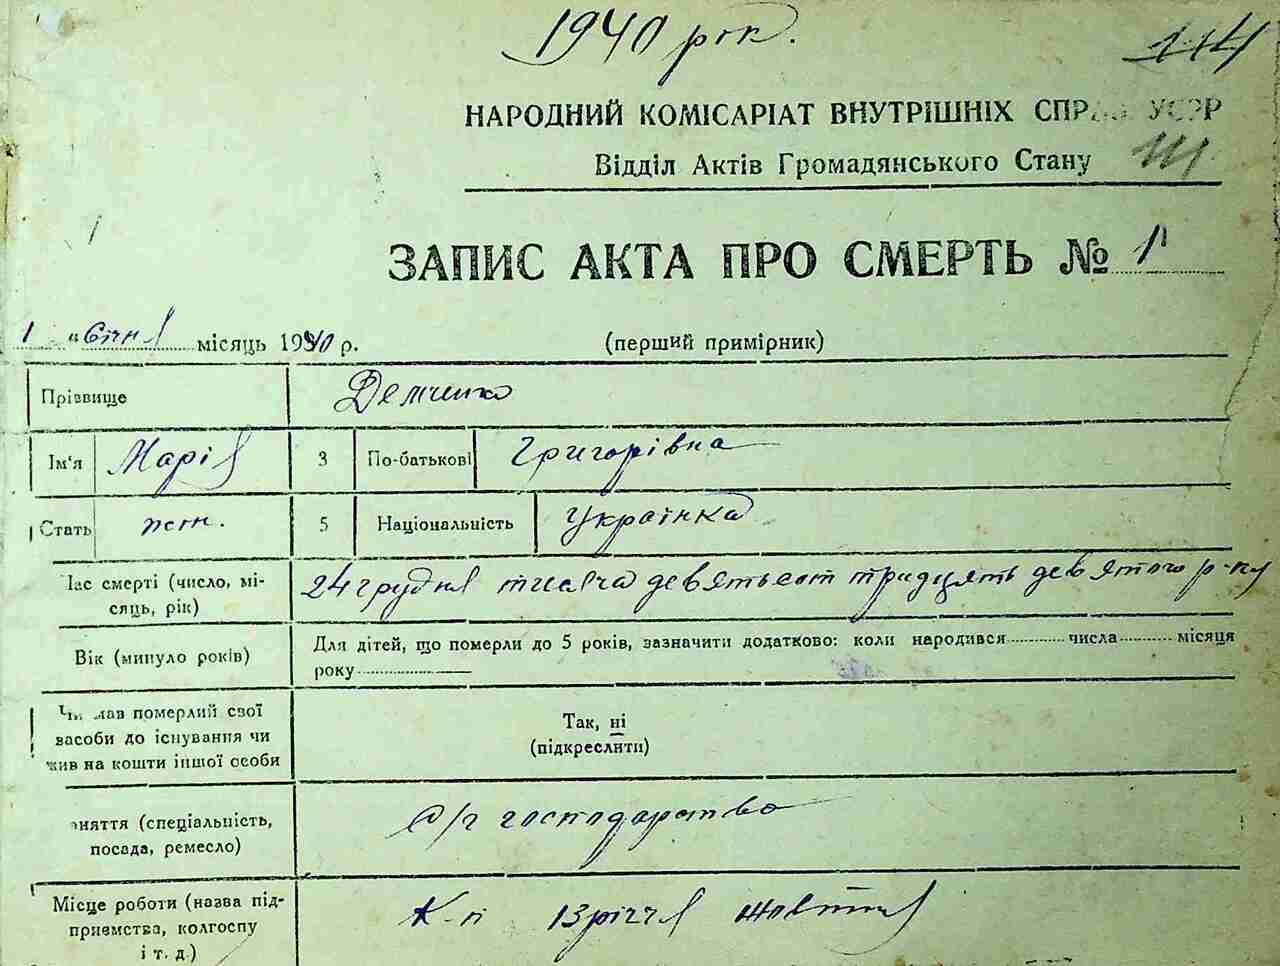 1940 рік.
114
НАРОДНИЙ КОМІСАРІАТ ВНУТРІШНІХ СПРАВ УСРР
Відділ Актів Громадянського Стану
ЗАПИС АКТА ПРО СМЕРТЬ № 1
1 „ січня місяць 1940 р. (перший примірник)
Прізвище Демченко
Ім'я Марія 3 По-батькові Григорівна
Стать жін. 5 Національність Українка
Час смерті (число, мі-
сяць, рік) 24 грудня тисяча девятьсот тридцять девятого р-ку
Вік (минуло років) Для дітей, що померли до 5 років, зазначити додатково: коли народився числа місяця
року
Чи мав померлий свої
засоби до існування чи
жив на кошти іншої особи
Так, ні
(підкреслити)
няття (спеціальність,
посада, ремесло) с/г господарство
Місце роботи (назва під-
приємства, колгоспу
і т. д.) К-п 13річчя жовтня